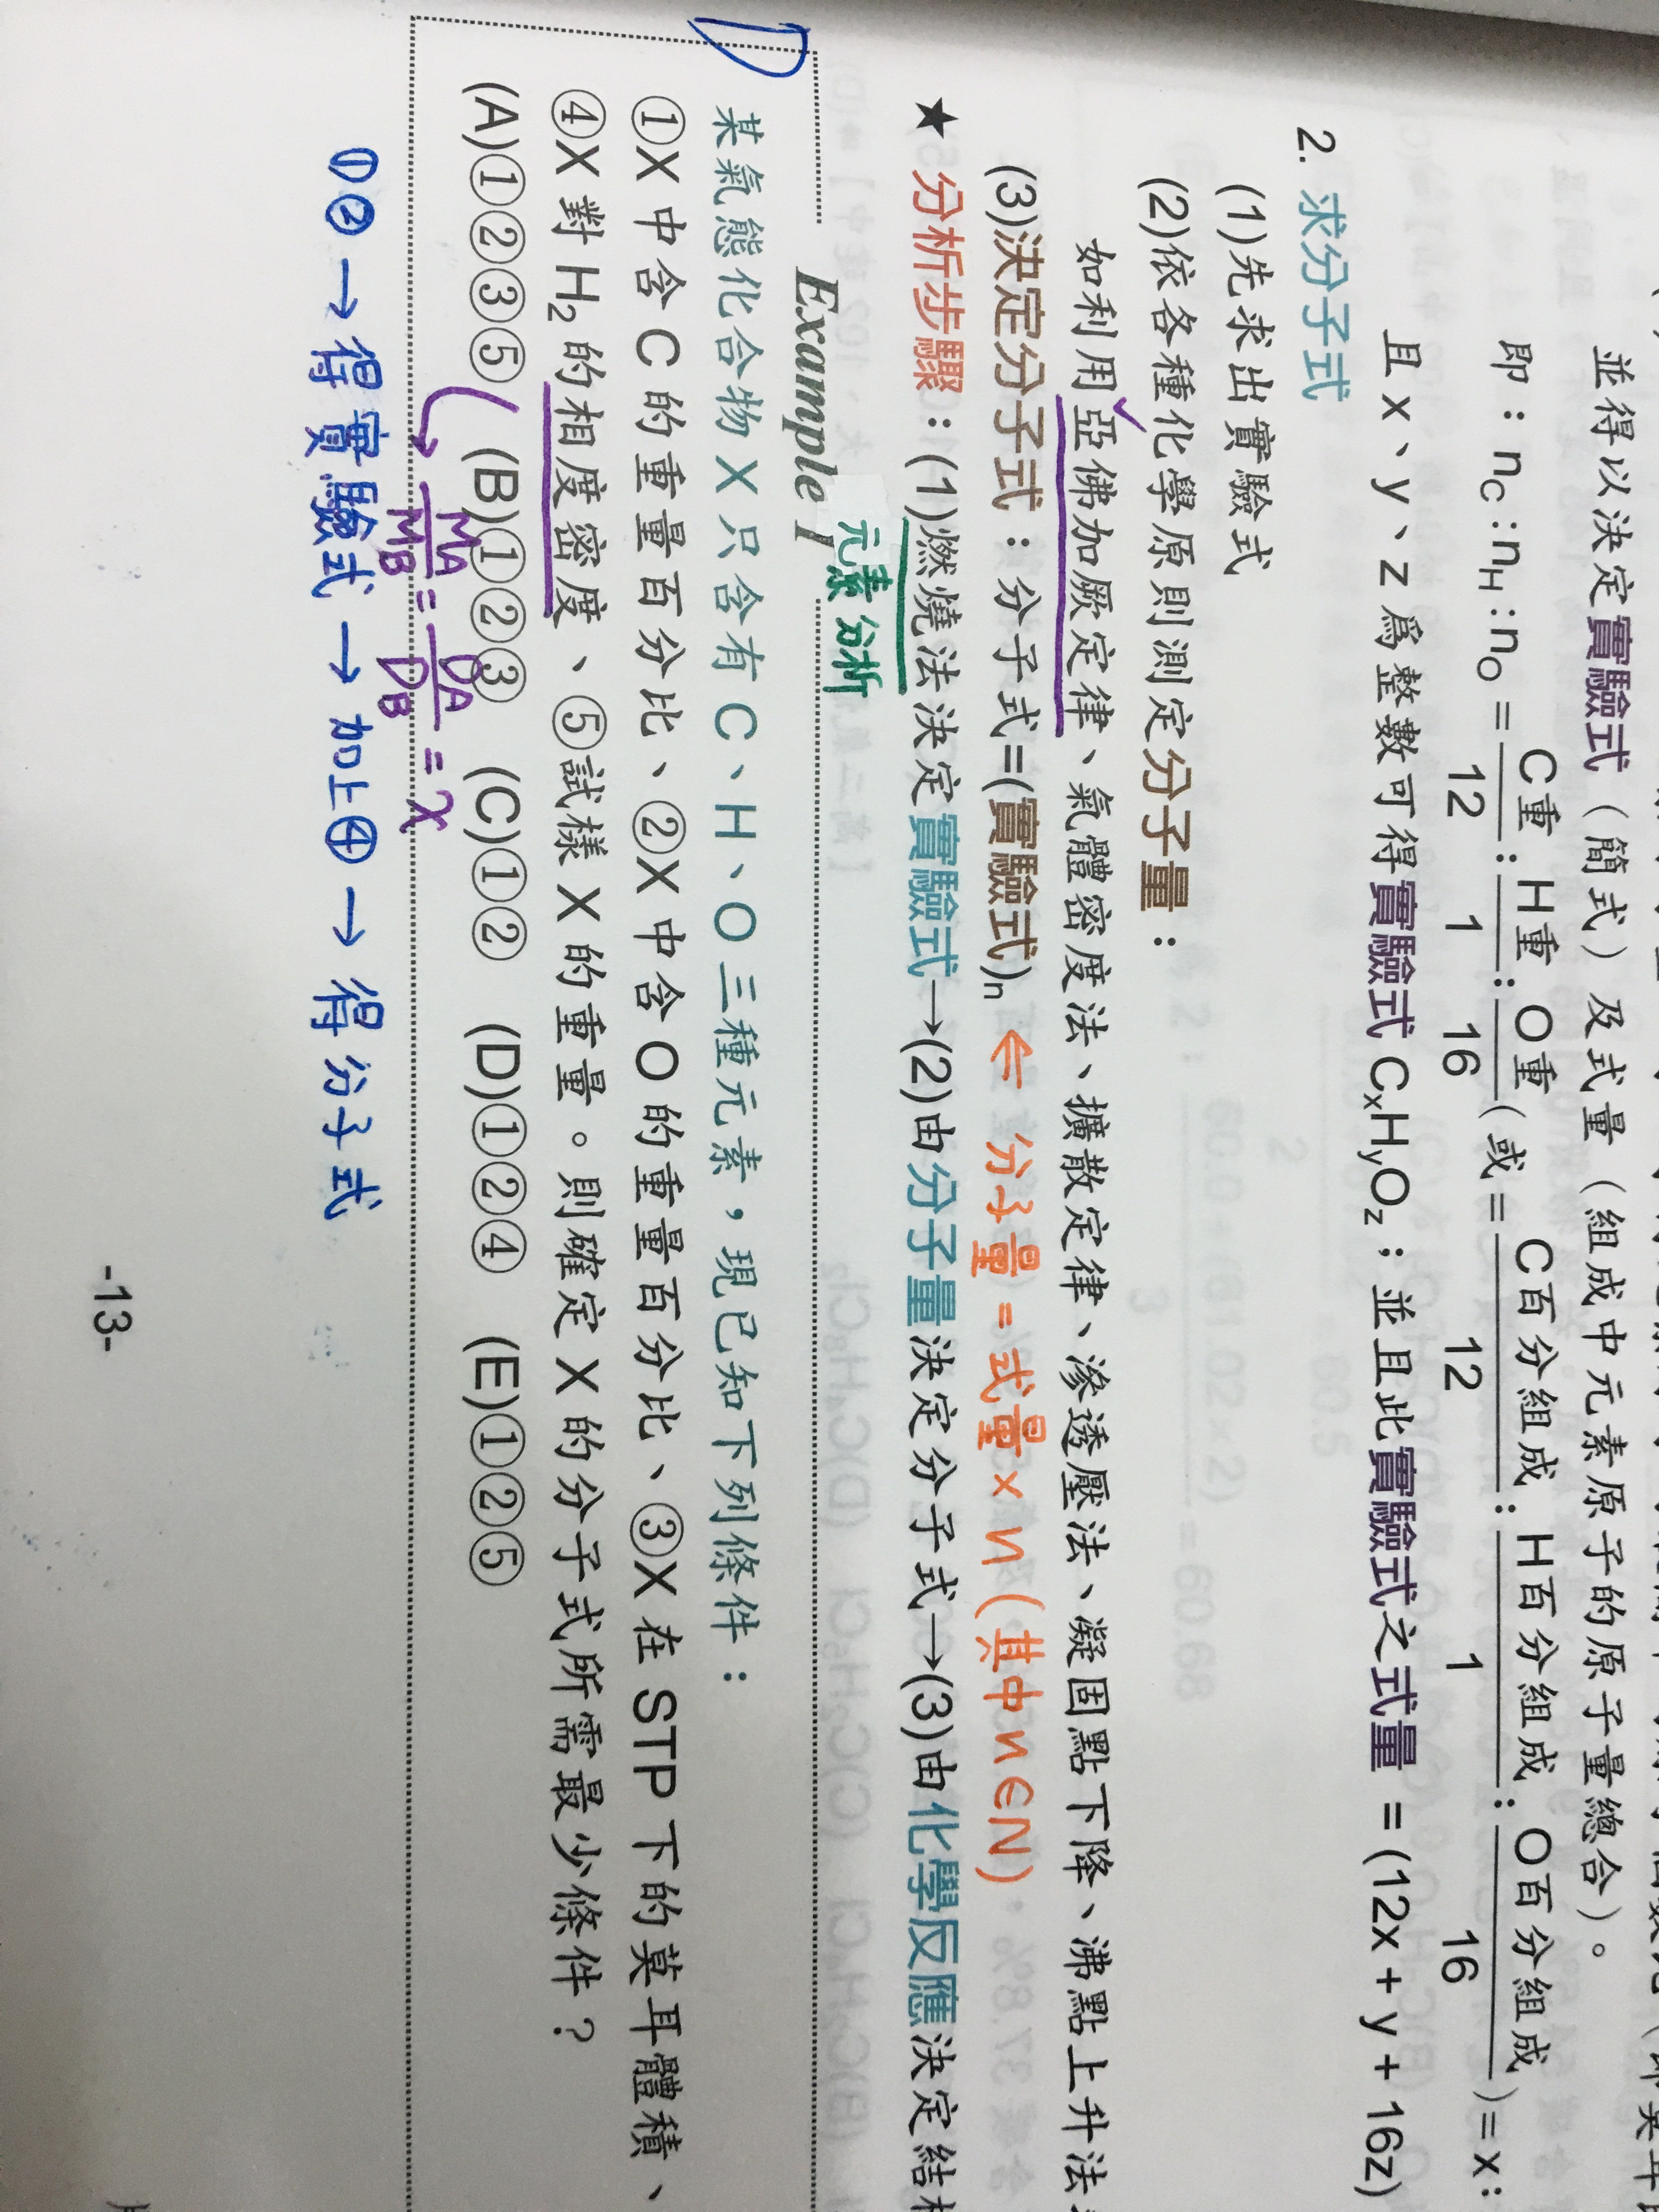 並得以決定實驗式（簡式）及式量（組成中元素原子的原子量總合）。
即：nC:nH:nO = C重/12 : H重/1 : O重/16 (或 = C百分組成/12 : H百分組成/1 : O百分組成/16) = x:
且 x、y、z 爲整數可得實驗式 CxHyOz；並且此實驗式之式量 = (12x + y + 16z)
2. 求分子式
(1)先求出實驗式
(2)依各種化學原則測定分子量：
如利用亞佛加厥定律、氣體密度法、擴散定律、滲透壓法、凝固點下降、沸點上升法
(3)決定分子式：分子式=(實驗式)n ← 分子量 = 式量 × n (其中 n ∈ N)
★ 分析步驟：(1)燃燒法決定實驗式→(2)由分子量決定分子式→(3)由化學反應決定結
元素分析
Example 1
D
某氣態化合物 X 只含有 C、H、O 三種元素，現已知下列條件：
①X 中含 C 的重量百分比、②X 中含 O 的重量百分比、③X 在 STP 下的莫耳體積、
④X 對 H₂ 的相度密度、⑤試樣 X 的重量。則確定 X 的分子式所需最少條件？
(A)①②③⑤ (B)①②③ (C)①② (D)①②④ (E)①②⑤
MA/MB = DA/DB = x
①② → 得實驗式 → 加上④ → 得分子式
-13-